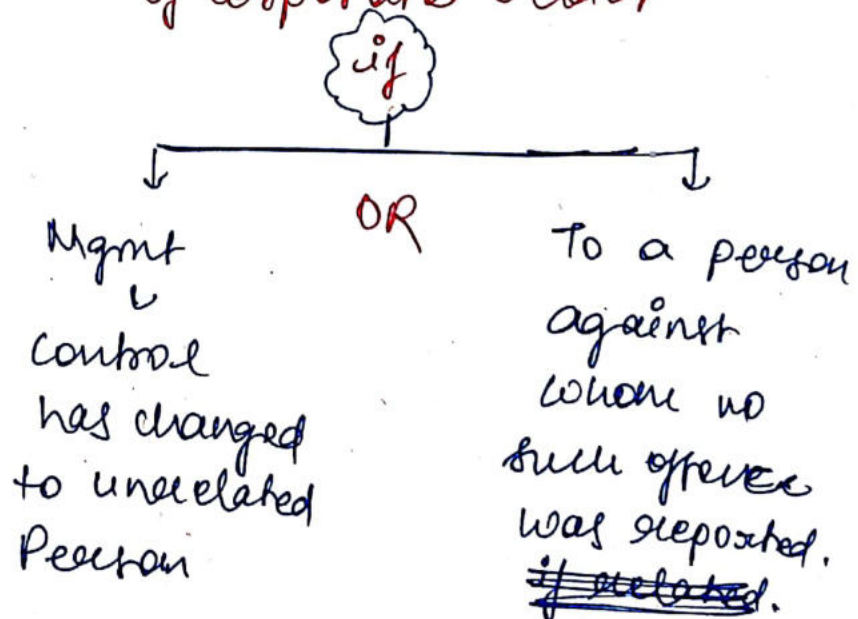 of corporate debtor
if
OR
Mgmt
↓
control
has changed
to unrelated
Person
To a person
against
whom no
such offence
was reported.
if related.